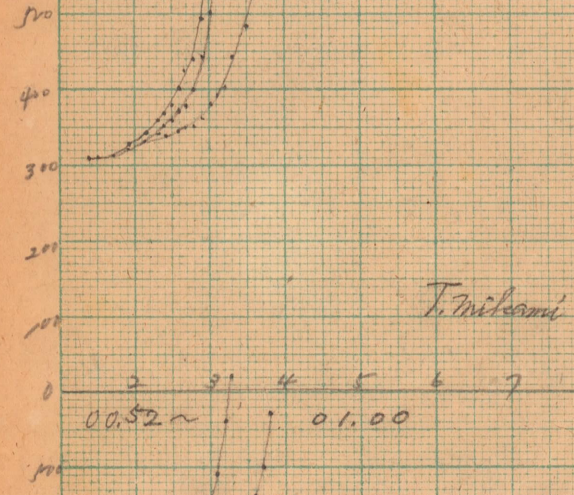 500
400
300
200
100
T. Mikami
0 2 3 4 5 6 7
00.52 ~ 01.00
100